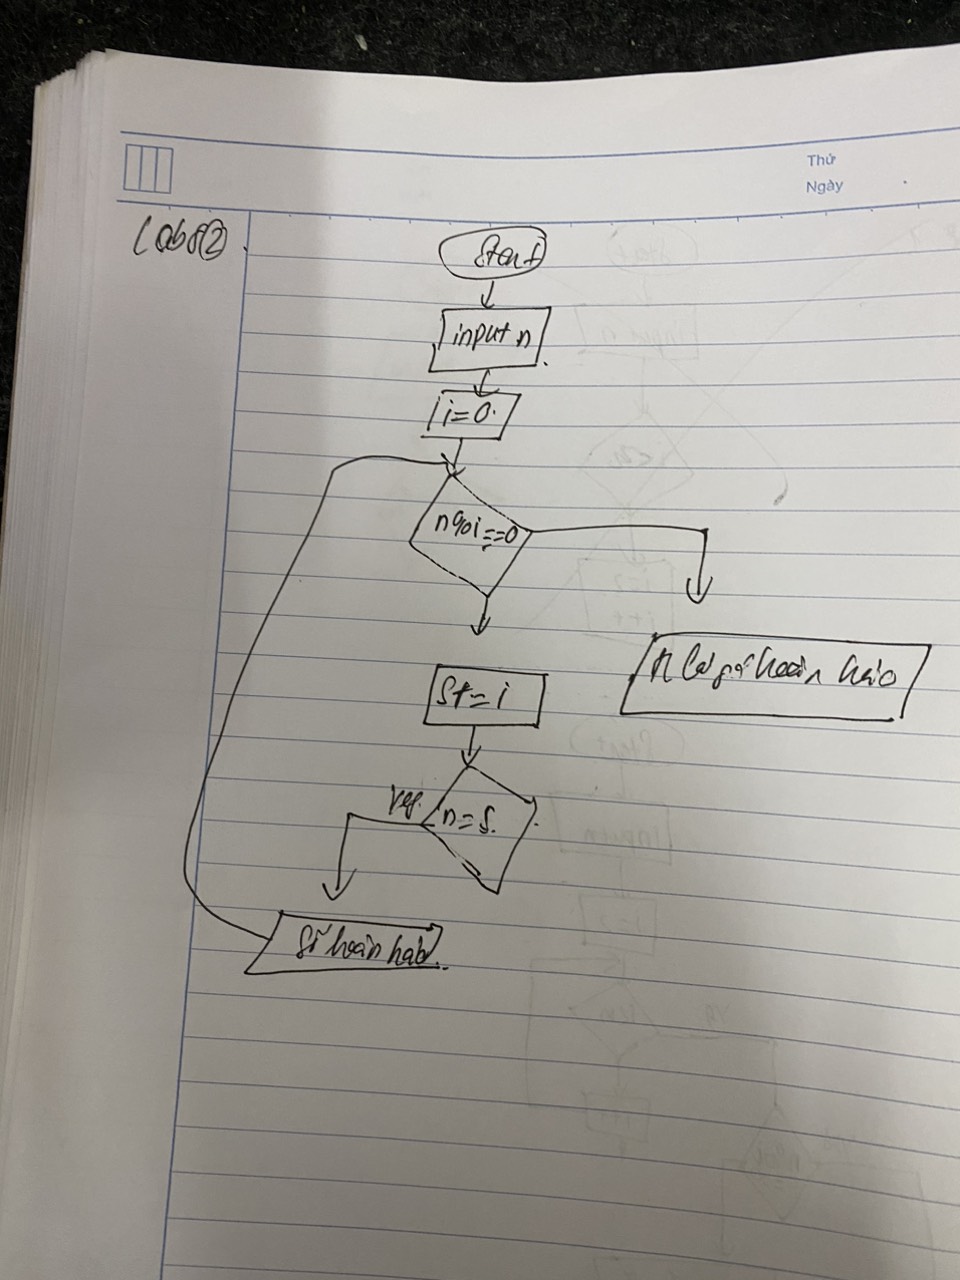 Thứ
Ngày
Start
input n
i=0.
n%i==0
S+=i
n là số hoàn hảo
yes.
n=S.
Số hoàn hảo.